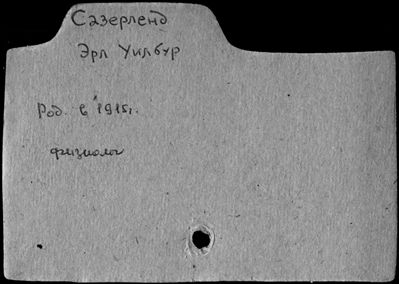 Сазерленд
Эрл Уилбур
Род. в 1915г.
физиолог